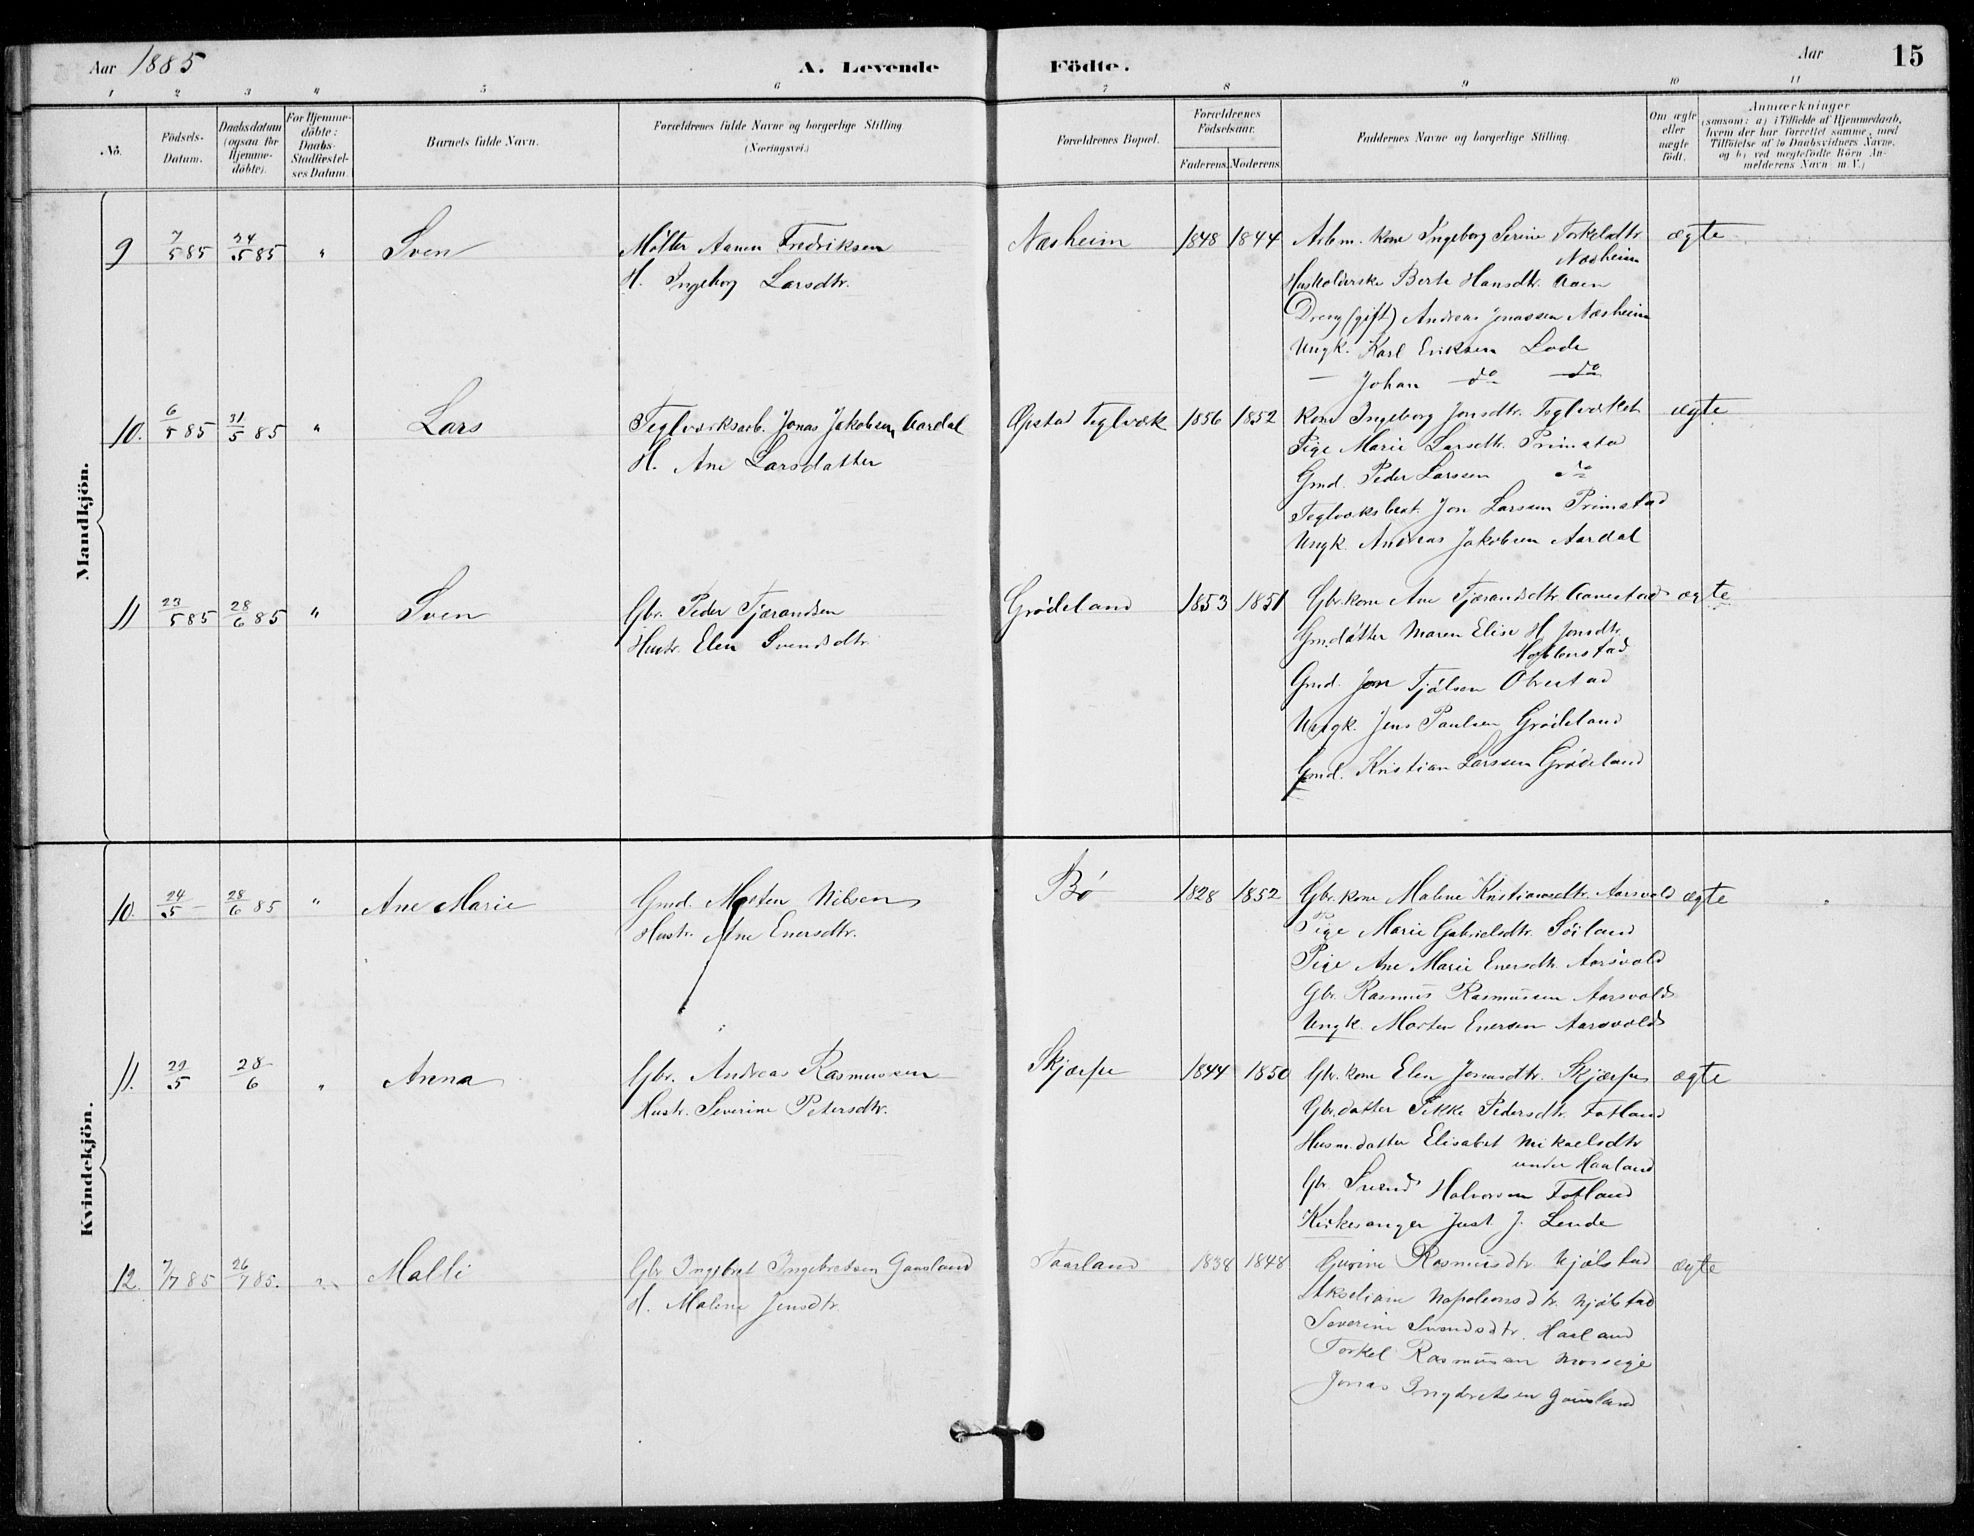 Aar 1885
A. Levende Födte.
Aar
15
1 2 3 4 5 6 7 8 9 10 11
No.
Födsels-Datum.
Daabsdatum (ogsaa for Hjemme-döbte).
For Hjemme-döbte: Daabs-Stadfæstel-ses Datum.
Barnets fulde Navn.
Forældrenes fulde Navne og borgerlige Stilling (Næringsvei.)
Forældrenes Bopæl.
Forældrenes Födselsaar.
Faderens. Moderens.
Faddernes Navne og borgerlige Stilling.
Om ægte eller uægte födt.
Anmærkninger
(saasom: a) i Tilfælde af Hjemmedaab,
hvem der har forrettet samme, med
Tilföielse af to Daabsvidners Navne,
og b) ved uægtefödte Börn An-
melderens Navn m. V.)
Mandkjön.
9 7/5 85 24/5 85 " Sven
Møller Aanen Fredriksen
H. Ingeborg Larsdtr.
Næsheim 1848 1844
Arbm. kone Ingeborg Serine Torkelsdtr.
Næsheim
Berte Hansdtr. Aaen
Dreng (gift) Andreas Jonassen Næsheim
Ungk. Karl Eriksen Lode
— Johan do do
ægte
10. 6/5 85 31/5 85 " Lars
Teglværksarb. Jonas Jakobsen Aardal
H. Ane Larsdatter
Opstad Teglværk 1856 1852
Kone Ingeborg Jonsdtr. Teglværket
Pige Marie Larsdtr. Primstad
Gmd. Peder Larssen do
Jon Larssen Primstad
Ungk. Andreas Jakobsen Aardal
ægte
11 23/5 85 28/6 85 " Sven
Gbr. Peder Tjærandsen
Hustr. Elen Svendsdtr.
Grødeland 1853 1851
Gbr. kone Ane Tjærandsdtr. Aanestad
Gmdatter Maren Elise H. Jonsdtr.
Gmd. Jon Tjølsen Obrestad
Ungk. Jens Paulsen Grødeland
Gmd. Kristian Larssen Grødeland
ægte
Kvindekjön.
10. 24/5 — 28/6 85 " Ane Marie
Gmd. Morten Nilsen
Hustr. Ane Enersdtr.
Bø 1828 1852
Gbr. kone Malene Kristiansdtr. Aarsvold
Pige Marie Gabrielsdtr. Söiland
Pige Ane Marie Enersdtr. Aarsvold
Gbr. Rasmus Rasmussen Aarsvold
Ungk. Morten Enersen Aarsvold
ægte
11. 29/5 28/6 " Arena
Gbr. Andreas Rasmussen
Hustr. Severine Petersdtr.
Skjærpe 1844 1850
Gbr. kone Elen Jonasdtr. Skjærpe
Gbr. datter Sikke Pedersdtr. Fotland
Husm.datter Elisabet Mikaelsdtr
under Haaland
Gbr. Svend Halvorsen Fotland
Kirkesanger Just J. Lende
ægte
12. 7/7 85 26/7 85. " Malli
Gbr Ingebret Ingebretsen Gausland
H. Malene Jensdtr.
Taarland 1838 1848
Gurine Rasmusdtr. Njølstad
Akseliane Napoleonsdtr. Njølstad
Severine Svendsdtr. Haaland
Torkel Rasmussen Mossige
Jonas Ingebretsen Gausland
ægte